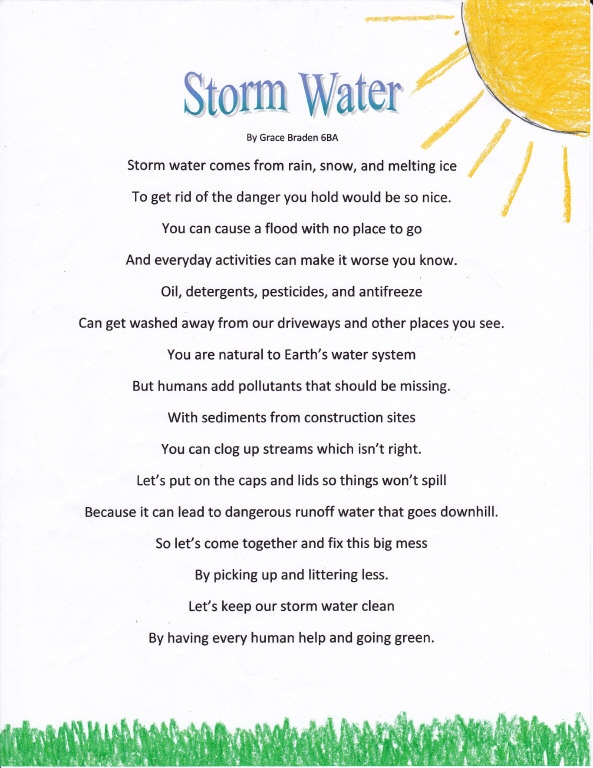 Storm Water
By Grace Braden 6BA
Storm water comes from rain, snow, and melting ice
To get rid of the danger you hold would be so nice.
You can cause a flood with no place to go
And everyday activities can make it worse you know.
Oil, detergents, pesticides, and antifreeze
Can get washed away from our driveways and other places you see.
You are natural to Earth's water system
But humans add pollutants that should be missing.
With sediments from construction sites
You can clog up streams which isn't right.
Let's put on the caps and lids so things won't spill
Because it can lead to dangerous runoff water that goes downhill.
So let's come together and fix this big mess
By picking up and littering less.
Let's keep our storm water clean
By having every human help and going green.